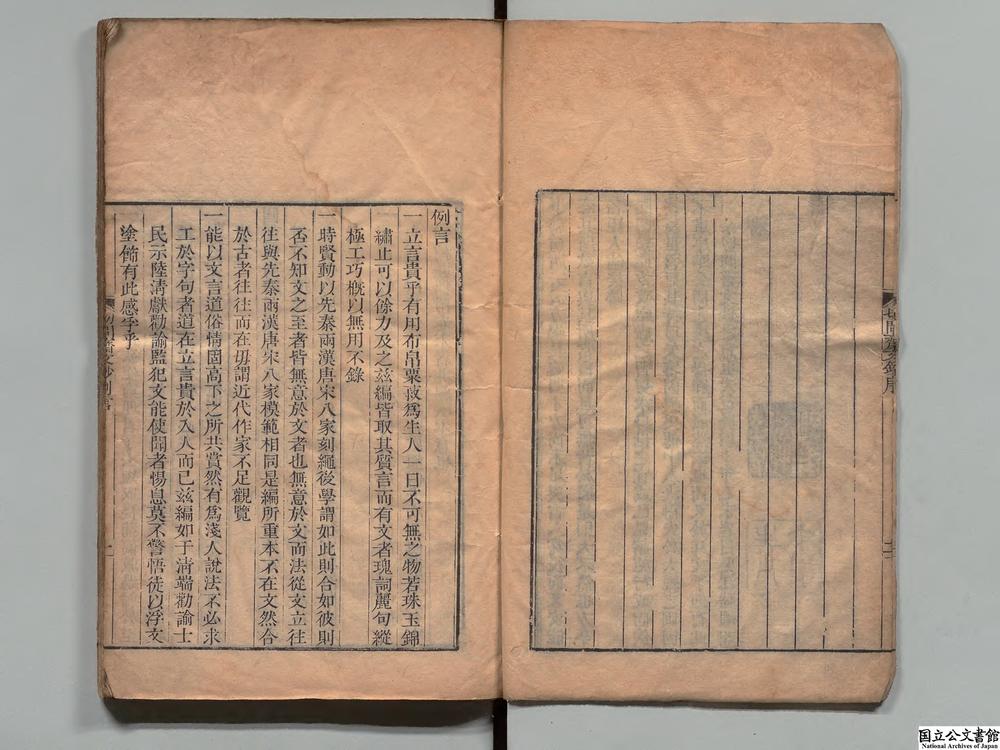 例言
一立言貴乎有用布帛粟菽爲生人一日不可無之物若珠玉錦
繡止可以餘力及之茲編皆取其質言而有文者瑰詞麗句縱
極工巧槪以無用不錄
一時賢動以先秦兩漢唐宋八家刻繩後學謂如此則合如彼則
否不知文之至者皆無意於文者也無意於文而法從文立往
往與先秦兩漢唐宋八家模範相同是編所重本不在文然合
於古者往往而在毋謂近代作家不足觀覽
一能以文言道俗情固高下之所共賞然有爲淺人說法不必求
工於字句者道在立言貴於入人而已茲編如于淸端勸諭士
民示陸淸獻勸諭監犯文能使聞者惕息莫不警悟徒以浮文
塗飾有此感孚乎
国立公文書館
National Archives of Japan